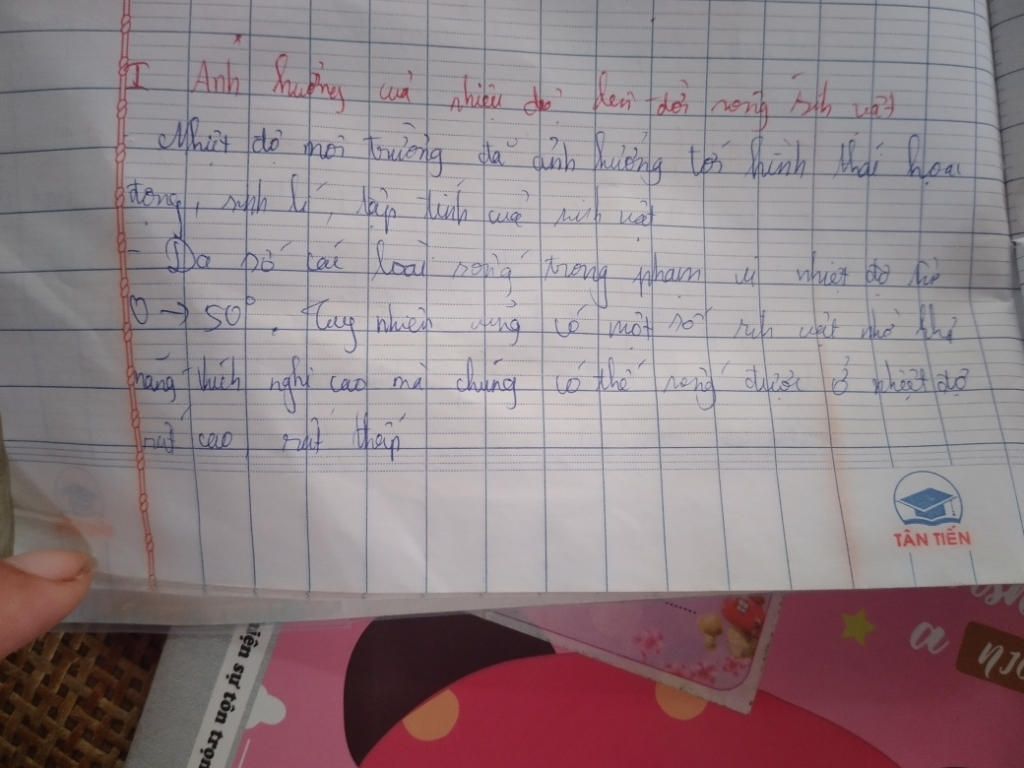 I Ảnh hưởng của nhiệu độ lên đời sống sinh vật
- Nhiệt độ môi trường đã ảnh hưởng tới hình thái hoạt
động, sinh lí, tập tính của sinh vật
- Đa số các loài sống trong phạm vi nhiệt độ từ
0 → 50°. Tuy nhiên cũng có một số sinh vật nhờ khả
năng thích nghi cao mà chúng có thể sống được ở nhiệt độ
rất cao, rất thấp
TÂN TIẾN
hiện sự tôn trọn
a